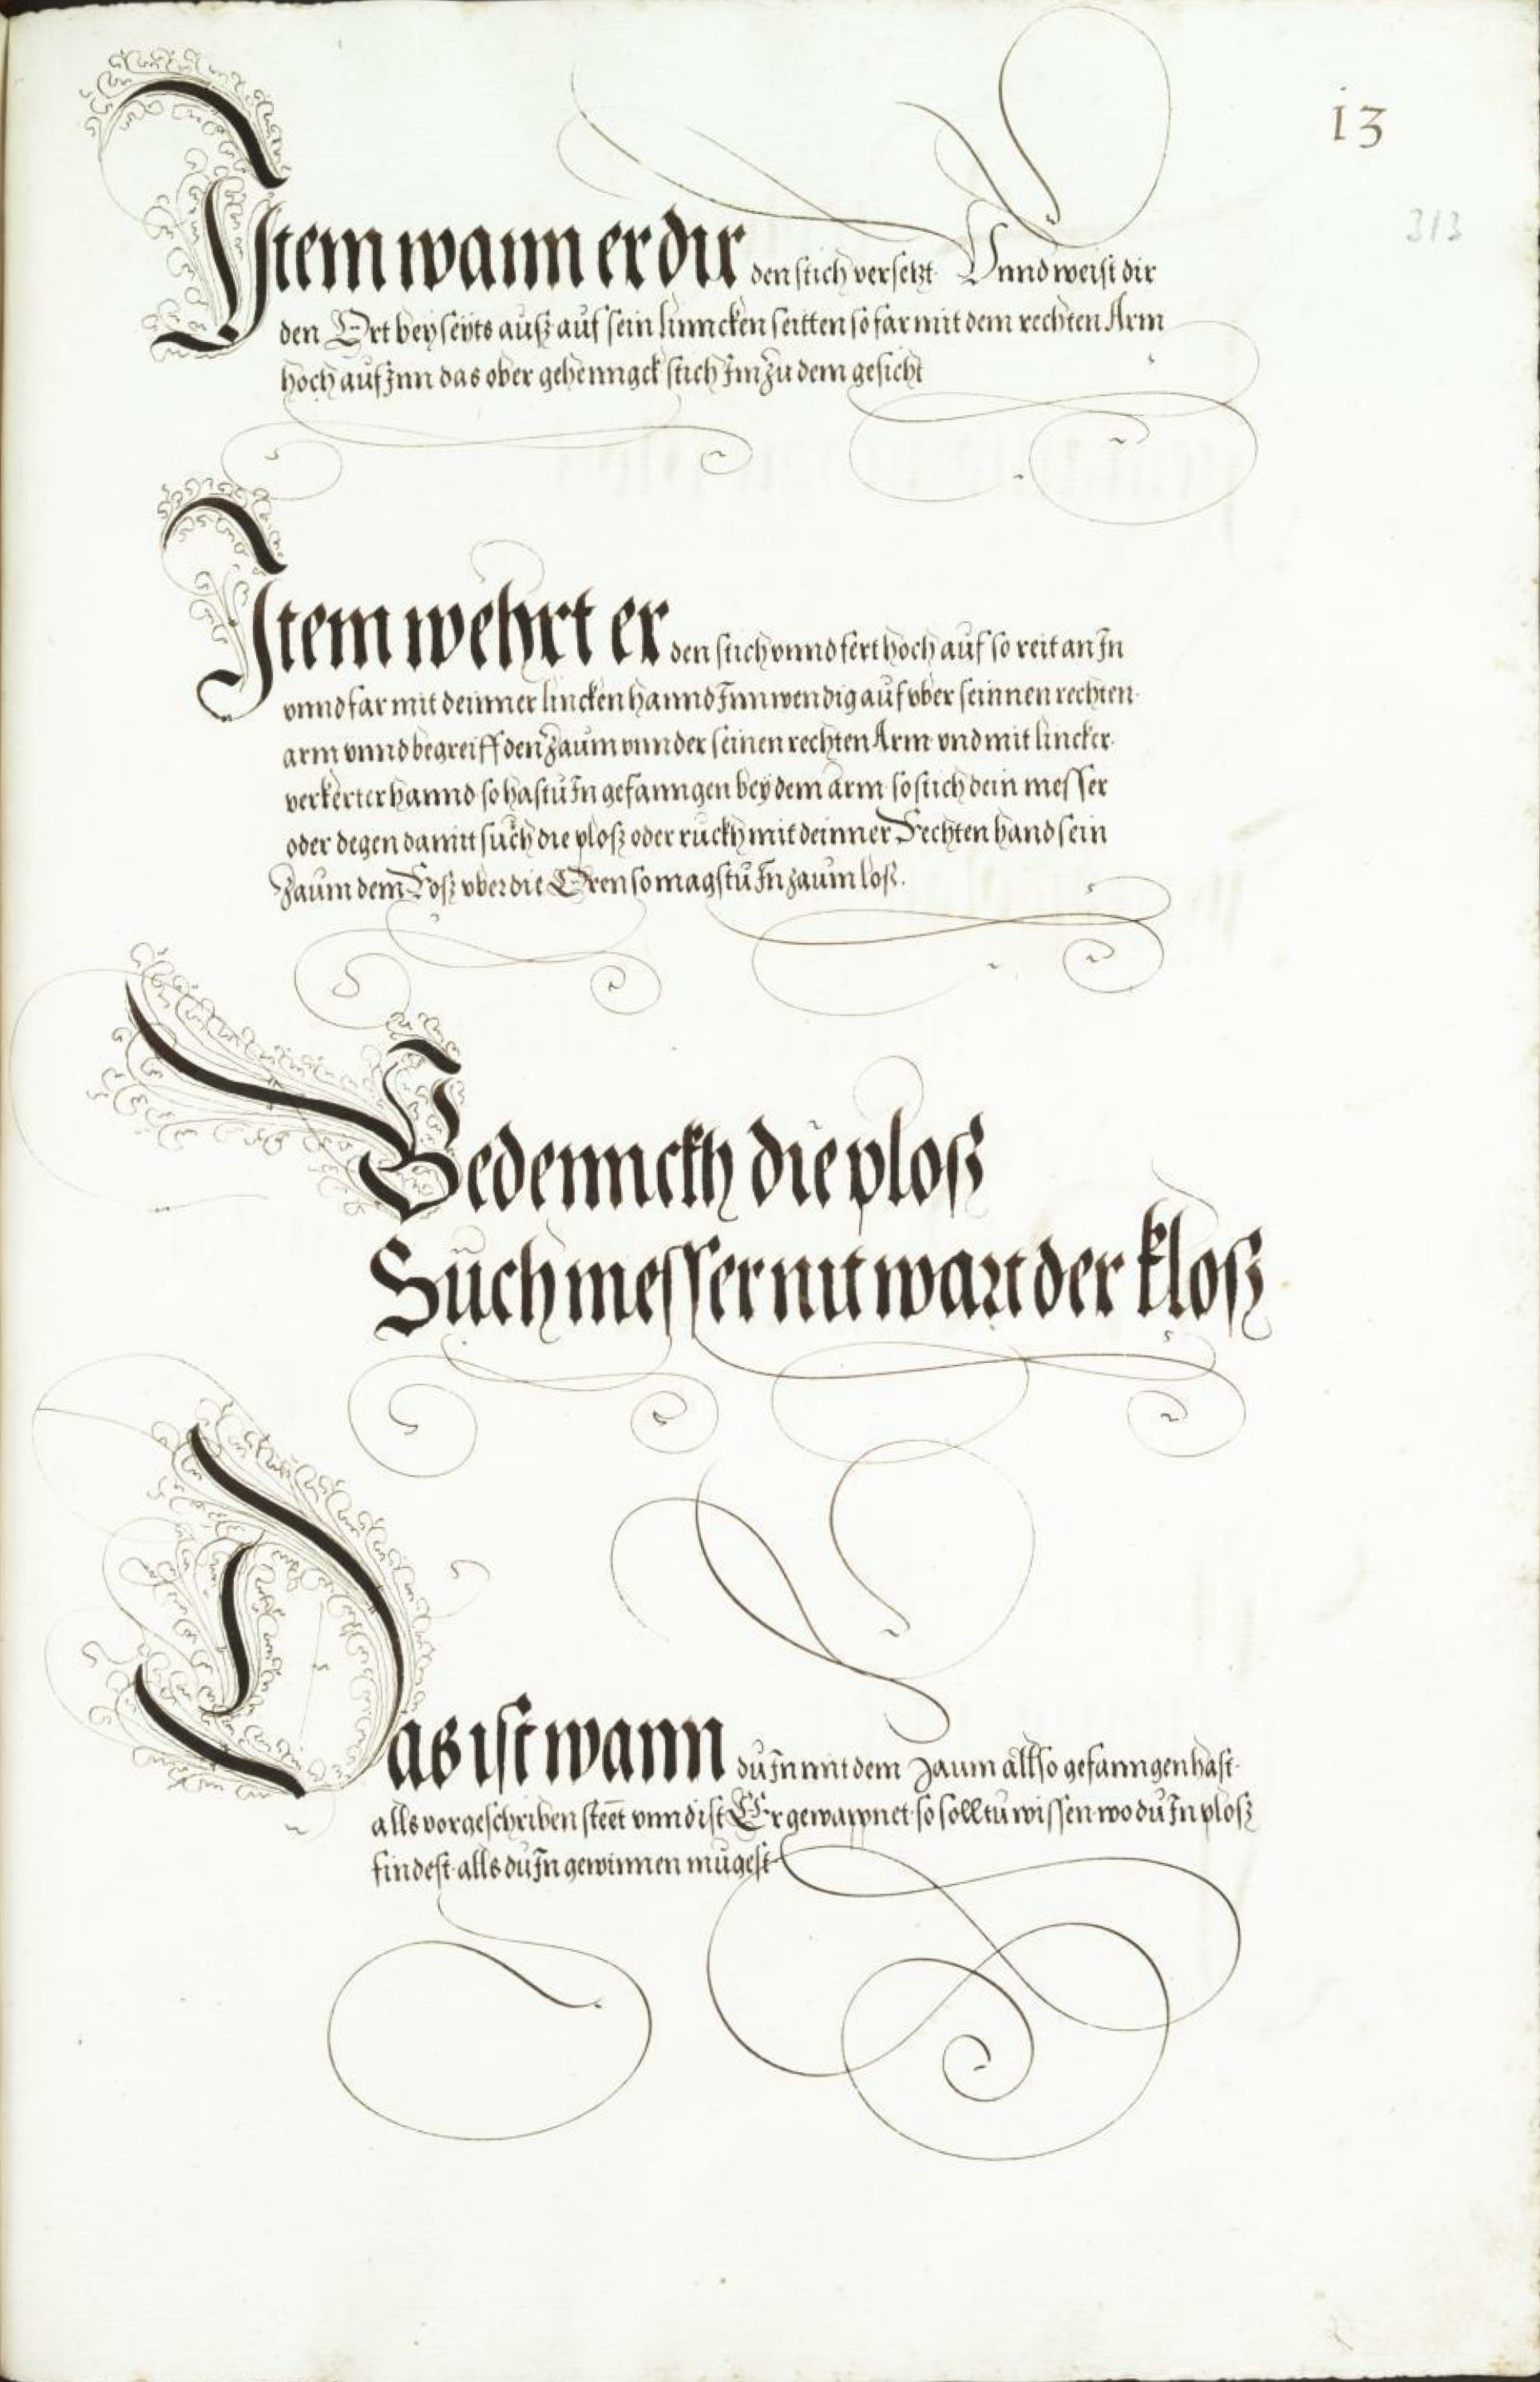 13
313
Item wann er dir den stich versetzt Vnnd weist dir
den Ort bey seyts auß auf sein linncken seitten so far mit dem rechten Arm
hoch auf Inn das ober gehenngck stich Im zu dem gesicht
Item wehrt er den stich vnnd fert hoch auf so reit an In
vnnd far mit deinner lincken hannd Innwendig auf vber seinnen rechten
arm vnnd begreiff den zaum vnnder seinen rechten Arm vnd mit lincker
verkerter hannd so hastu In gefanngen bey dem arm so stich dein messer
oder degen damit such die ploß oder ruckh mit deinner Rechten hand sein
Zaum dem Roß vber die Oren so magstu In zaum loß.
Bedennckh die ploß
Such messer nit wart der kloß
Das ist wann du In mit dem Zaum allso gefanngen hast
alls vorgeschriben steet vnnd ist Er gewappnet so solltu wissen wo du In ploß
findest alls du In gewinnen mugest